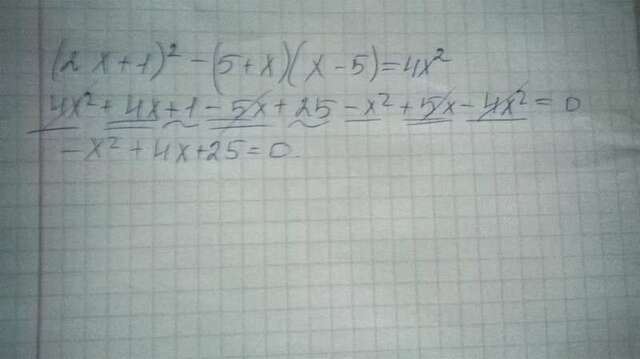 (2x+1)² - (5+x)(x-5)=4x²
4x² + 4x + 1 - 5x + 25 - x² + 5x - 4x² = 0
-x² + 4x + 25 = 0.